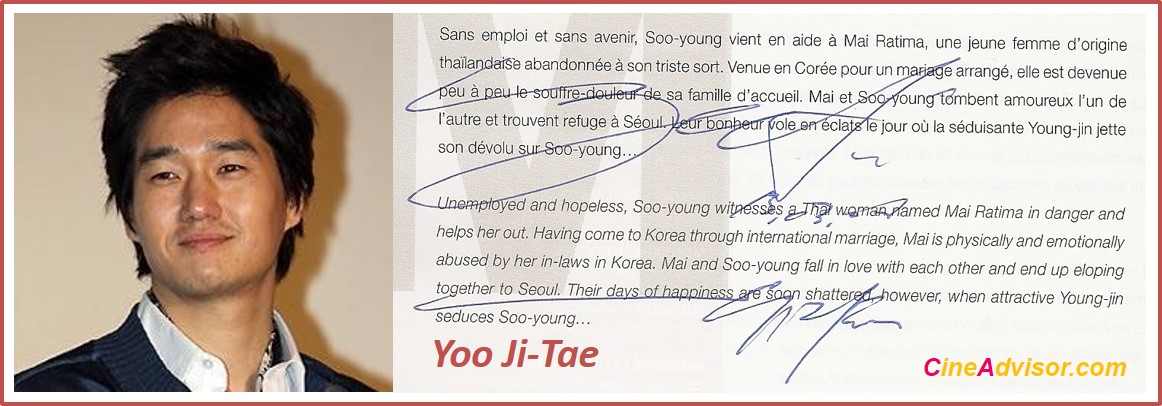 Sans emploi et sans avenir, Soo-young vient en aide à Mai Ratima, une jeune femme d'origine
thaïlandaise abandonnée à son triste sort. Venue en Corée pour un mariage arrangé, elle est devenue
peu à peu le souffre-douleur de sa famille d'accueil. Mai et Soo-young tombent amoureux l'un de
l'autre et trouvent refuge à Séoul. Leur bonheur vole en éclats le jour où la séduisante Young-jin jette
son dévolu sur Soo-young...
Unemployed and hopeless, Soo-young witnesses a Thai woman named Mai Ratima in danger and
helps her out. Having come to Korea through international marriage, Mai is physically and emotionally
abused by her in-laws in Korea. Mai and Soo-young fall in love with each other and end up eloping
together to Seoul. Their days of happiness are soon shattered, however, when attractive Young-jin
seduces Soo-young...
Yoo Ji-Tae
CineAdvisor.com